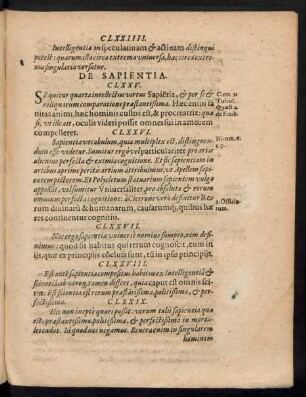 CLXXIIII.
Intelligentia in speculatiuam & actiuam distingui
potest: quarum ista circa extrema vniuersa, hæc circa extre
ma singularia versatur.
DE SAPIENTIA.
CLXXV.
SEquitur quarta intellectus virtus Sapiẽtia, & per se &
reliquarum comparatione præstantissima. Hæc enim sa
nitas animi, hæc hominis cultus est, & procreatrix: qua
si, vt ille ait, oculis videri posset omnes sui in amorem
compelleret.
CLXXVI.
Sapientia vocabulum, quia multiplex est, distinguen-
dum esse videtur. Sumitur ergò vel particulariter pro artis
alicuius perfecta & eximia cognitione. Et sic sapientiam in
artibus prima peritis artium attribuimus, vt Apellem sapi
entem pictorem, Et Polycletum statuarium sapientem vulgò
appellãt, vel sumitur Vniuersaliter, pro absoluta & rerum
omnium perfecta cognitione. A Cicerone verò definitur Rerum
diuinarũ & humanarum, caussarumq́; quibus hæ
res continentur cognitio.
CLXXVII.
Nos ergo sapientia vniuersè nomine sumpto, eam de-
finimus: quod sit habitus qui rerum cognoscit, cum in
ijs, quæ ex principijs cõclusa sunt, tũ in ipsis principijs.
CLXXVIII.
Est autẽ sapientia compositus habitus ex Intelligentia &
scientia: ab vtroq́; tamen differt, quia caput est omnis sci-
entiæ. Est scientia est rerum præstantissima, politissima, & per-
fectissima.
CLXXIX.
Hic non ineptè quæri posset: vtrum talis sapientia quæ
est præstantissima, politissima, & perfectissima in morta-
les cadat. Id quod nos negamus. Neque enim in singularem
hominem
Cice. 2.
Tuscul.
Quæst. &
de Finib.
1. Officio
rum.